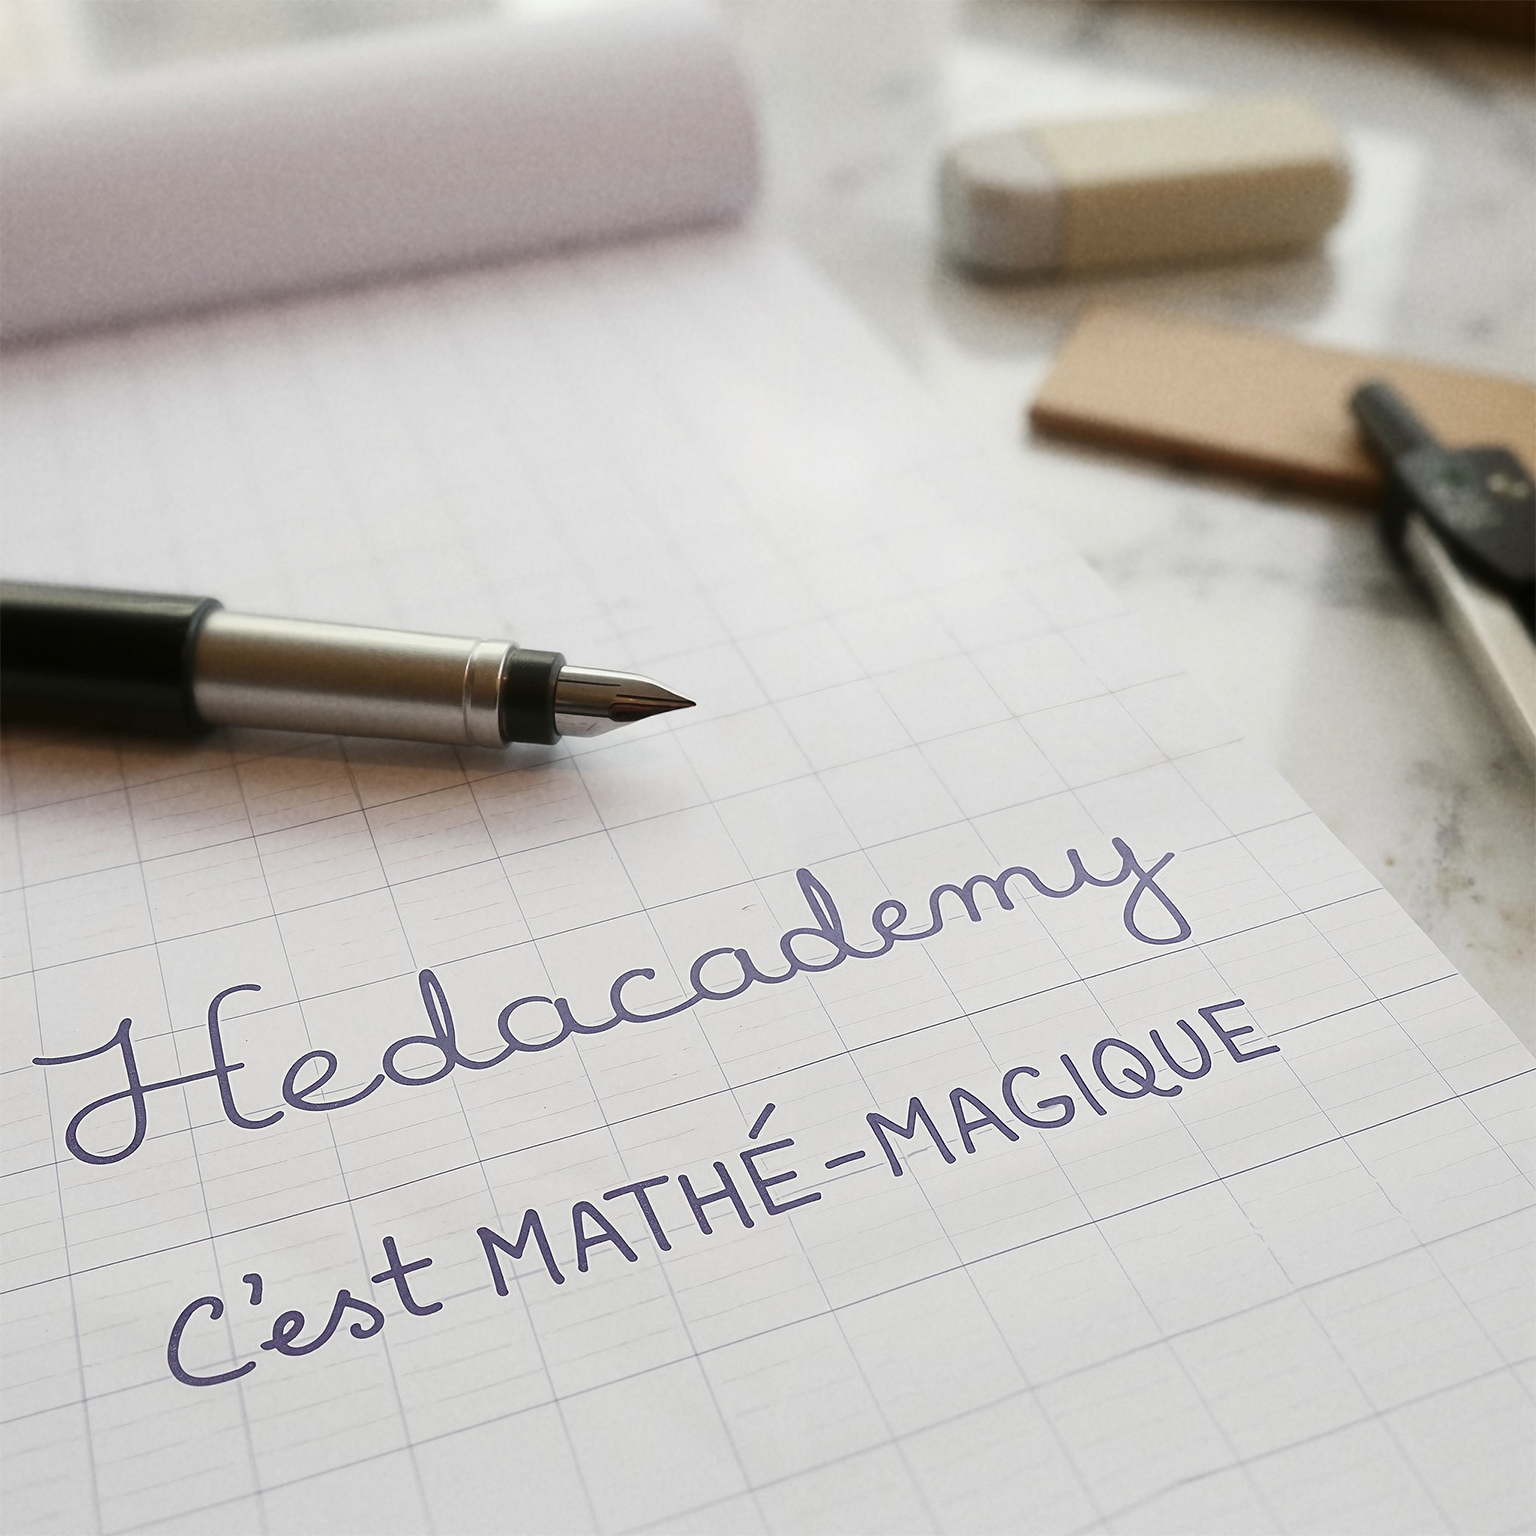 Hedacademy
C'est MATHÉ-MAGIQUE